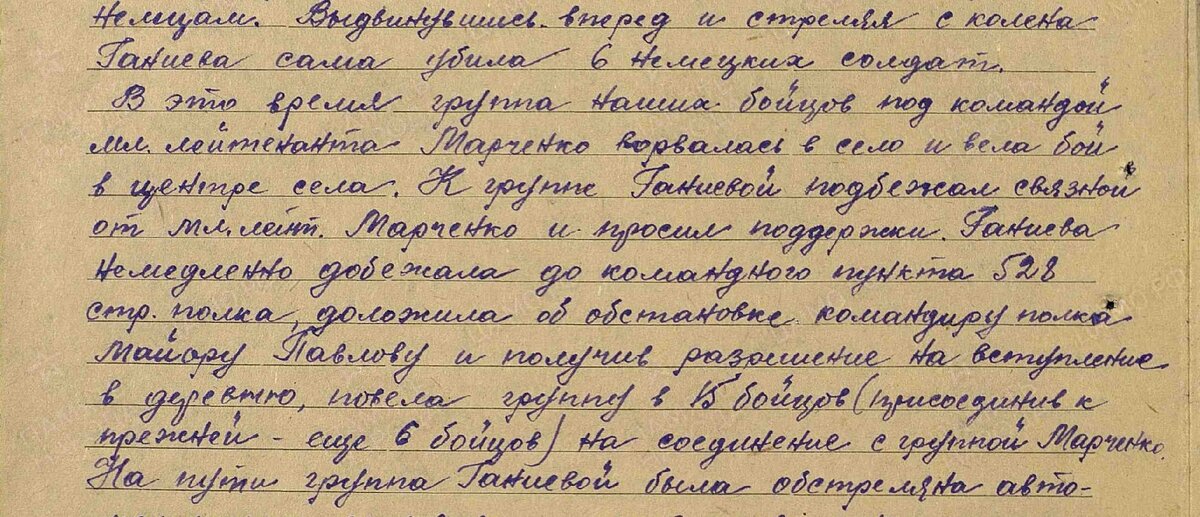 немцам. Выдвинувшись вперед и стреляя с колена
Ганиева сама убила 6 немецких солдат.
В это время группа наших бойцов под командой
мл. лейтенанта Марченко ворвалась в село и вела бой
в центре села. К группе Ганиевой подбежал связной
от мл. лейт. Марченко и просил поддержки. Ганиева
немедленно добежала до командного пункта 528
стр. полка, доложила об обстановке командиру полка
майору Павлову и получив разрешение на вступление
в деревню, повела группу в 15 бойцов (присоединив к
прежней - еще 6 бойцов) на соединение с группой Марченко.
На пути группа Ганиевой была обстреляна авто-